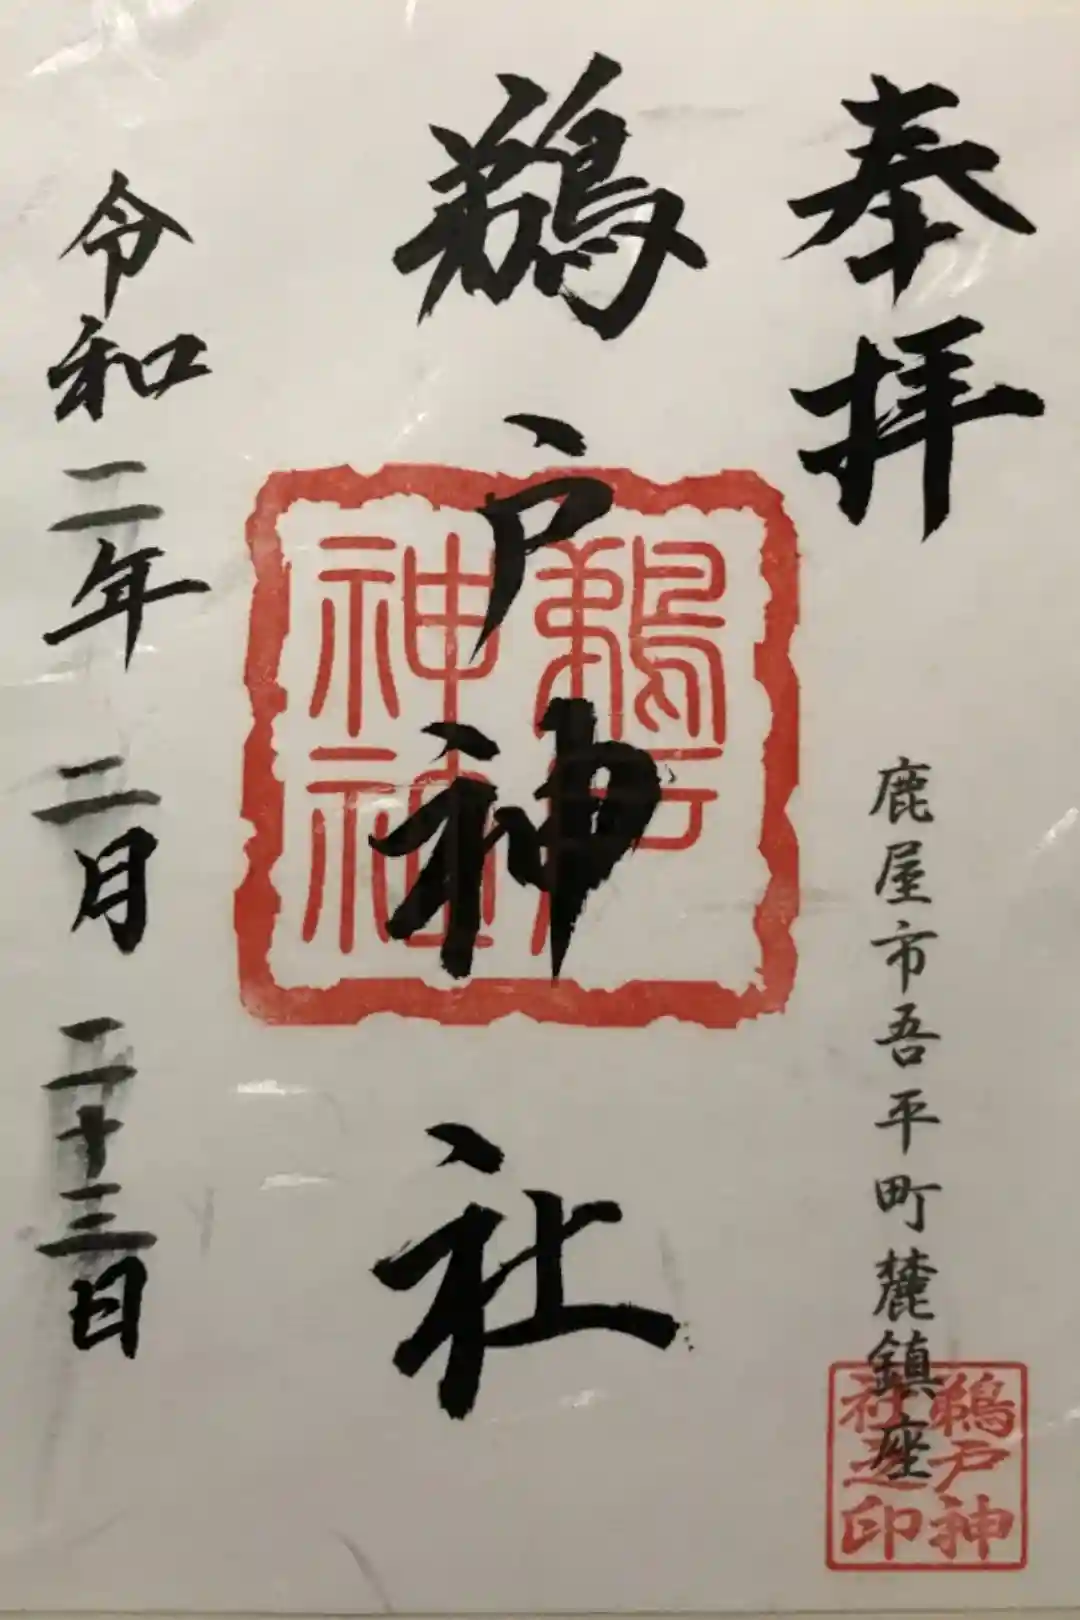 奉拝
鹿屋市吾平町麓鎮座
鵜戸神社
令和二年 二月 二十三日
鵜戸
神社
鵜戸神
社之印